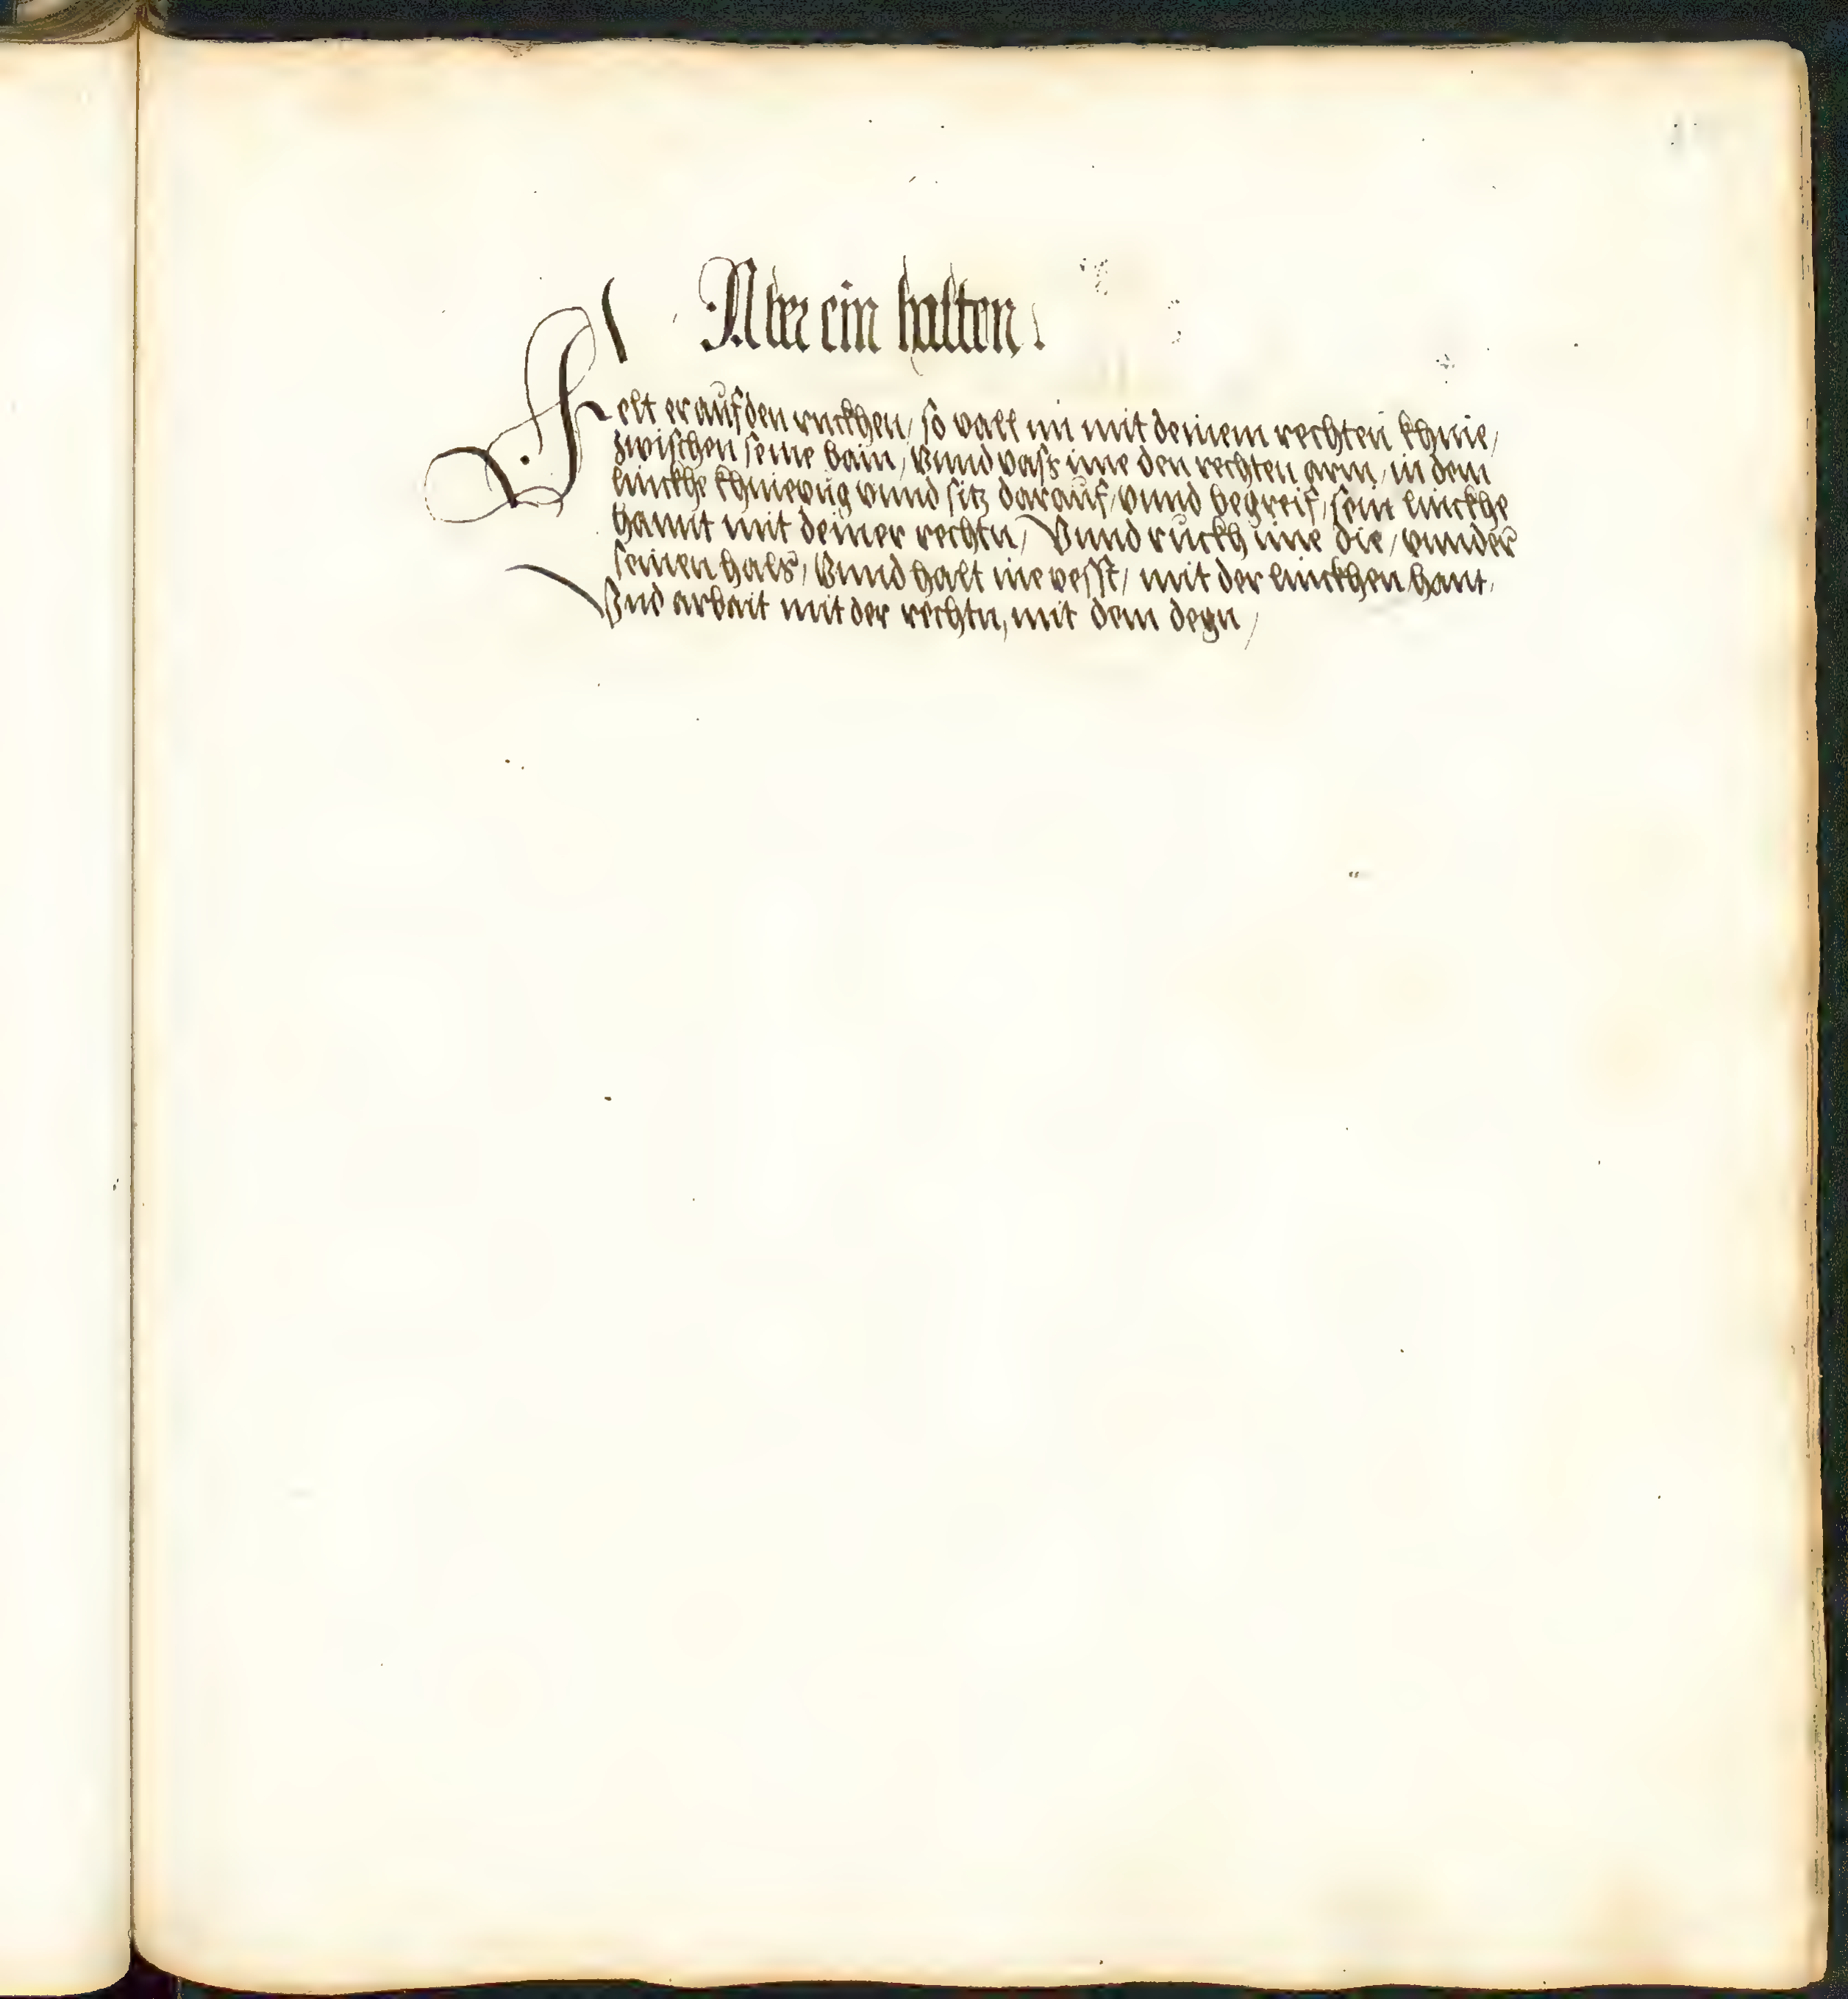 Aber ein halten.
Felt er auf den ruckhen / so vall im mit deinem rechten khnie /
zwischen seine bain / Vnnd vasß ime den rechten arm / in dem
linckhe khniepüg vnnd sitz darauf / vnnd begreif / sein linckhe
hannt mit deiner rechtn / Vnnd ruckh ime die / vnnder
seinen hals / Vnnd halt ine vesst / mit der linckhen hant.
Vnd arbait mit der rechtn, mit dem degn /